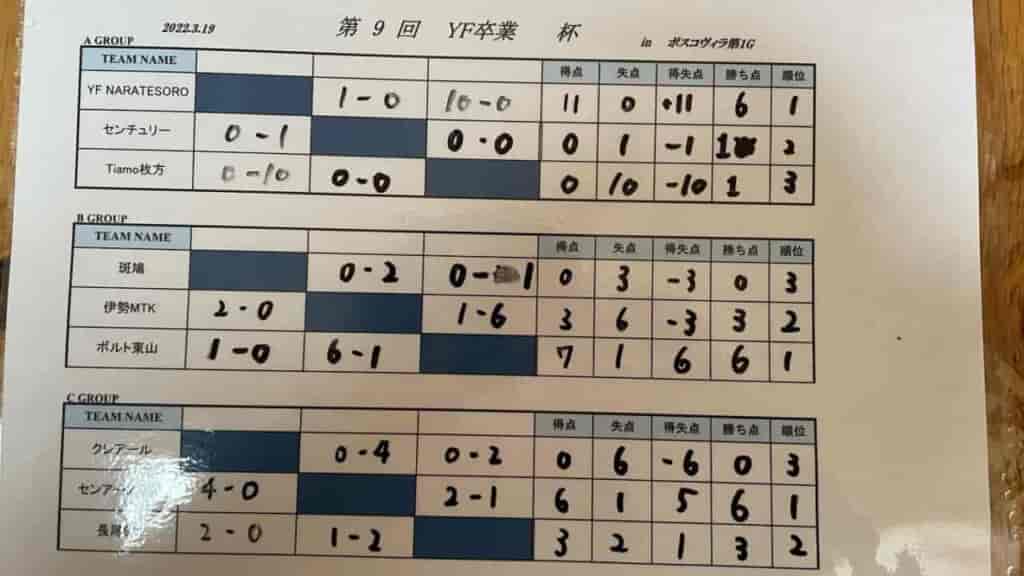 2022.3.19 第 9 回 YF卒業 杯 in ボスコヴィラ第1G
A GROUP
TEAM NAME 得点 失点 得失点 勝ち点 順位
YF NARATESORO 1-0 10-0 11 0 +11 6 1
センチュリー 0-1 0-0 0 1 -1 1 2
Tiamo枚方 0-10 0-0 0 10 -10 1 3
B GROUP
TEAM NAME 得点 失点 得失点 勝ち点 順位
斑鳩 0-2 0-1 0 3 -3 0 3
伊勢MTK 2-0 1-6 3 6 -3 3 2
ボルト東山 1-0 6-1 7 1 6 6 1
C GROUP
TEAM NAME 得点 失点 得失点 勝ち点 順位
クレアール 0-4 0-2 0 6 -6 0 3
4-0 2-1 6 1 5 6 1
2-0 1-2 3 2 1 3 2